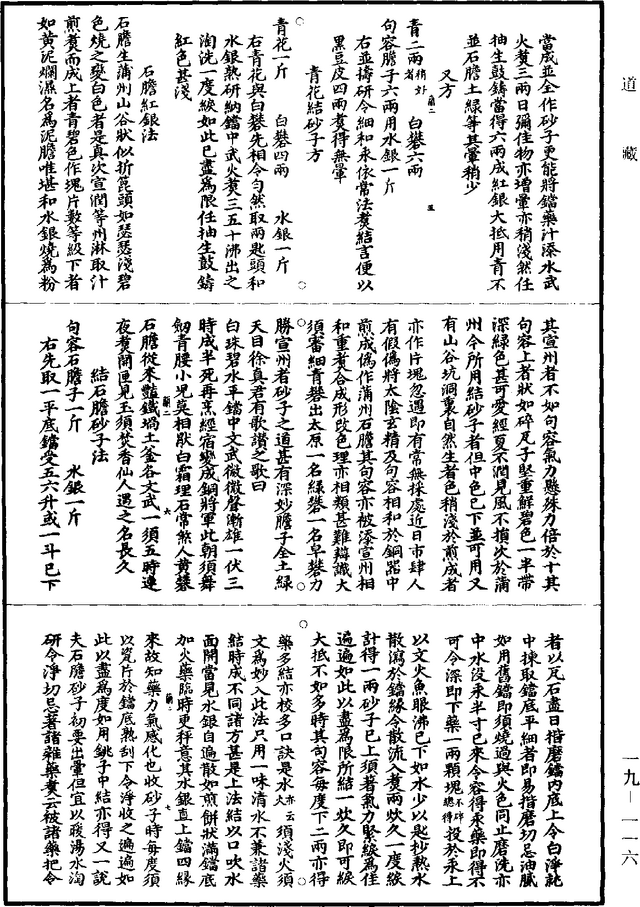 道藏
當成並全作砂子更能將鐺藥汁添水武
火煑三兩日彌佳物亦增暈亦稍淺然任
抽生鼓鑄當得六兩成紅銀大抵用青不
並石膽土綠等其暈稍少
又方
青二兩稍好者 白礬六兩
句容膽子六兩用水銀一斤
右並擣研令細和汞依常法煑結言便以
黑豆皮四兩煑得無暈
青花結砂子方
青花一斤 白礬四兩 水銀一斤
右青花與白礬先相令勻然取兩匙頭和
水銀熟研納鐺中武火煑三五十沸出之
淘洗一度綏如此已盡爲限任抽生鼓鑄
紅色甚淺
石膽紅銀法
石膽生蒲州山谷狀似折箆頭如瑟瑟淺碧
色燒之變白色者是真次宣潤等州淋取汁
煎煑而成上者青碧色作塊片數等級下者
如黄泥爛濕名爲泥膽唯堪和水銀燒爲粉
其宣州者不如句容氣力懸殊力倍於十其
句容上者狀如碎尺子堅重鮮碧色一半帶
深綠色甚可愛經夏不潤見風不損次於蒲
州今所用結砂子者但中色已下並可用又
有山谷坑洞裏自然生者色稍淺於煎成者
亦作片塊忽遇即有常無採處近日市肆人
有假僞將太陰玄精及句容相和於銅器中
煎成僞作蒲州石膽其句容亦被漆宣州相
和重煑合成形改色理亦相類甚難辯識大
須審細青礬出太原一名綠礬一名皁礬力
勝宣州者砂子之道甚有深妙膽子全土綠
天目徐真君有歌讚之歌曰
白珠碧水平鐺中文武微微聲漸雄一伏三
時成半死再烹經宿變成銅將軍此朝須舞
劒青腰小兒莫相猒白霜理石常煞人黄礬
石膽從來豔鐵堝土釜各文武一須五時連
夜煑開匣見玉須焚香仙人遇之名長久
結石膽砂子法
句容石膽子一斤 水銀一斤
右先取一平底鐺受五六升或一斗已下
者以瓦石盡日揩磨鐺內底上令白淨訖
中揀取鐺底平細者即易揩磨切忌油膩
如用舊鐺即須燒過與火色同止磨洗亦
中水沒汞半寸已來令容得汞藥即得不
可令深即下藥一兩顆塊不碎總得投於汞上
以文火魚眼沸已下如水少以匙抄熱水
散瀉於鐺緣令散流入煑兩炊久一度綏
計得一兩砂子已上須著氣力堅綏爲佳
遍遍如此以盡爲限所結一炊久即可綏
大抵不如多時其句容每度下二兩亦得
藥多結亦校多口訣是水火亦云須淺火須
文爲妙入此法只用一味清水不兼諸藥
結時成不同諸方甚是上法結以口吹水
面開當見水銀自遍散如煎餅狀滿鐺底
加火藥臨時更秤意其水銀直上鐺四緣
來故知藥力氣感化也收砂子時每度須
以瓷片於鐺底熟刮下令淨收之遍遍如
此以盡爲度如用銚子中結亦得又一說
夫石膽砂子初要出暈但宜以暖湯水淘
研令淨切忌著諸雜藥煑云被諸藥把令
一九—一一六